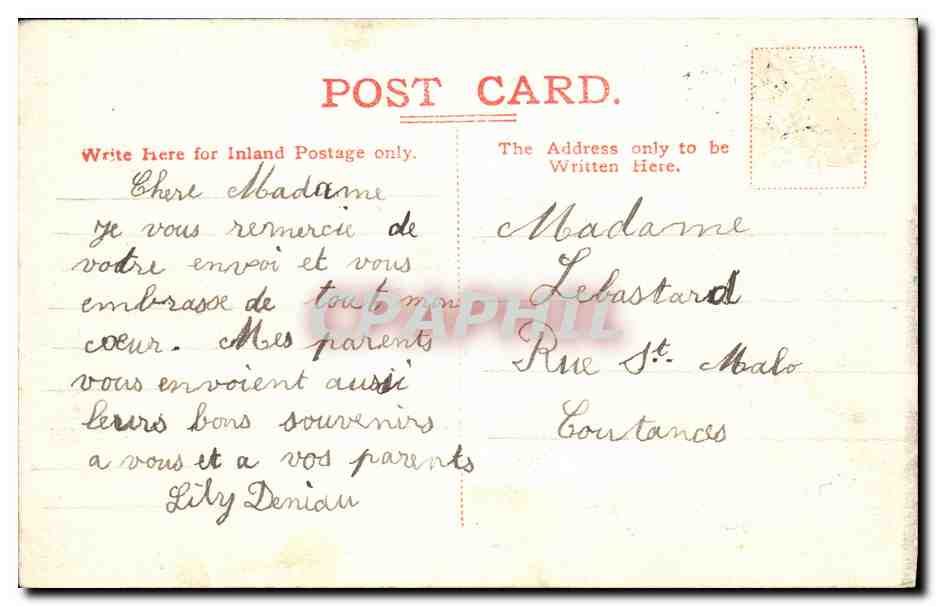 POST CARD.
Write Here for Inland Postage only.
Chere Madame
Je vous remercie de
votre envoi et vous
embrasse de tout mon
cœur. Mes parents
vous envoient aussi
leurs bons souvenirs
a vous et a vos parents
Lily Deniau
The Address only to be
Written Here.
Madame
Lebastard
Rue St. Malo
Coutances
CPAPHIL